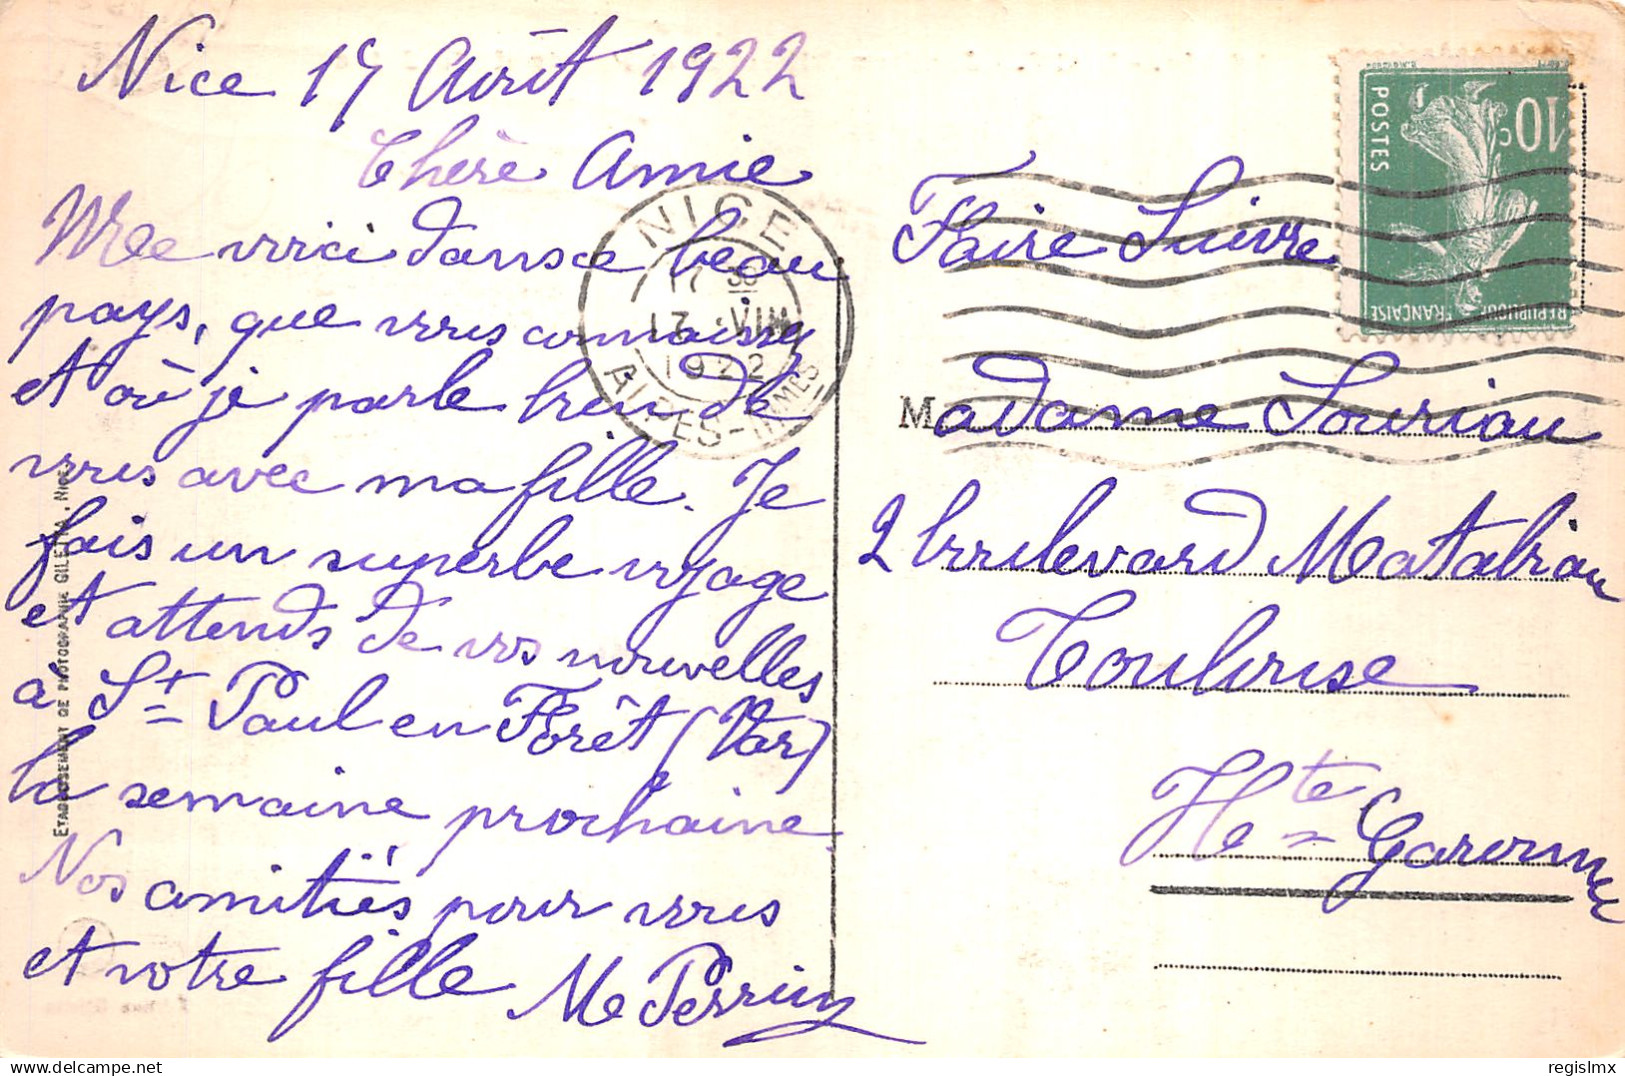 Nice 17 Août 1922
Chère Amie
Me voici dans ce beau
pays, que vous connaissez
et où je parle bien de
vous avec ma fille. Je
fais un superbe voyage
et attends de vos nouvelles
à St Paul en Forêt (Var)
la semaine prochaine.
Nos amitiés pour vous
et votre fille Me Perrin
ETABLISSEMENT DE PHOTOGRAPHIE GILETTA, NICE
NICE
17 30
17 VIII
1922
ALPES-MMES
10c
POSTES
REPUBLIQUE FRANÇAISE
Faire Suivre
Madame Souriau
2 boulevard Matabiau
Toulouse
Hte Garonne
regislmx